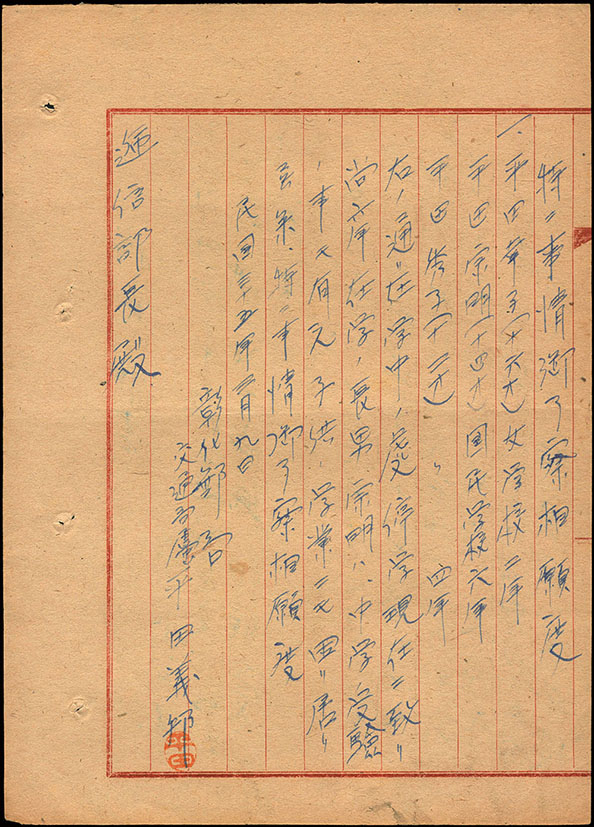 特ニ事情御了察相願度
一、平田幸子(十六才)女学校二年
平田宗明(十四才)国民学校六年
平田 子(十二才) 〃 四年
右ノ通リ在学中ノ處停学現在ニ致リ
尚 在学ノ長男宗明ハ中学受験
ノ事モ有之子供ノ学業ニモ困リ居リ
特ニ事情御了察相願度
民国三十五年二月九日
彰化郵
交通局 平田義
遞信部長殿
平田